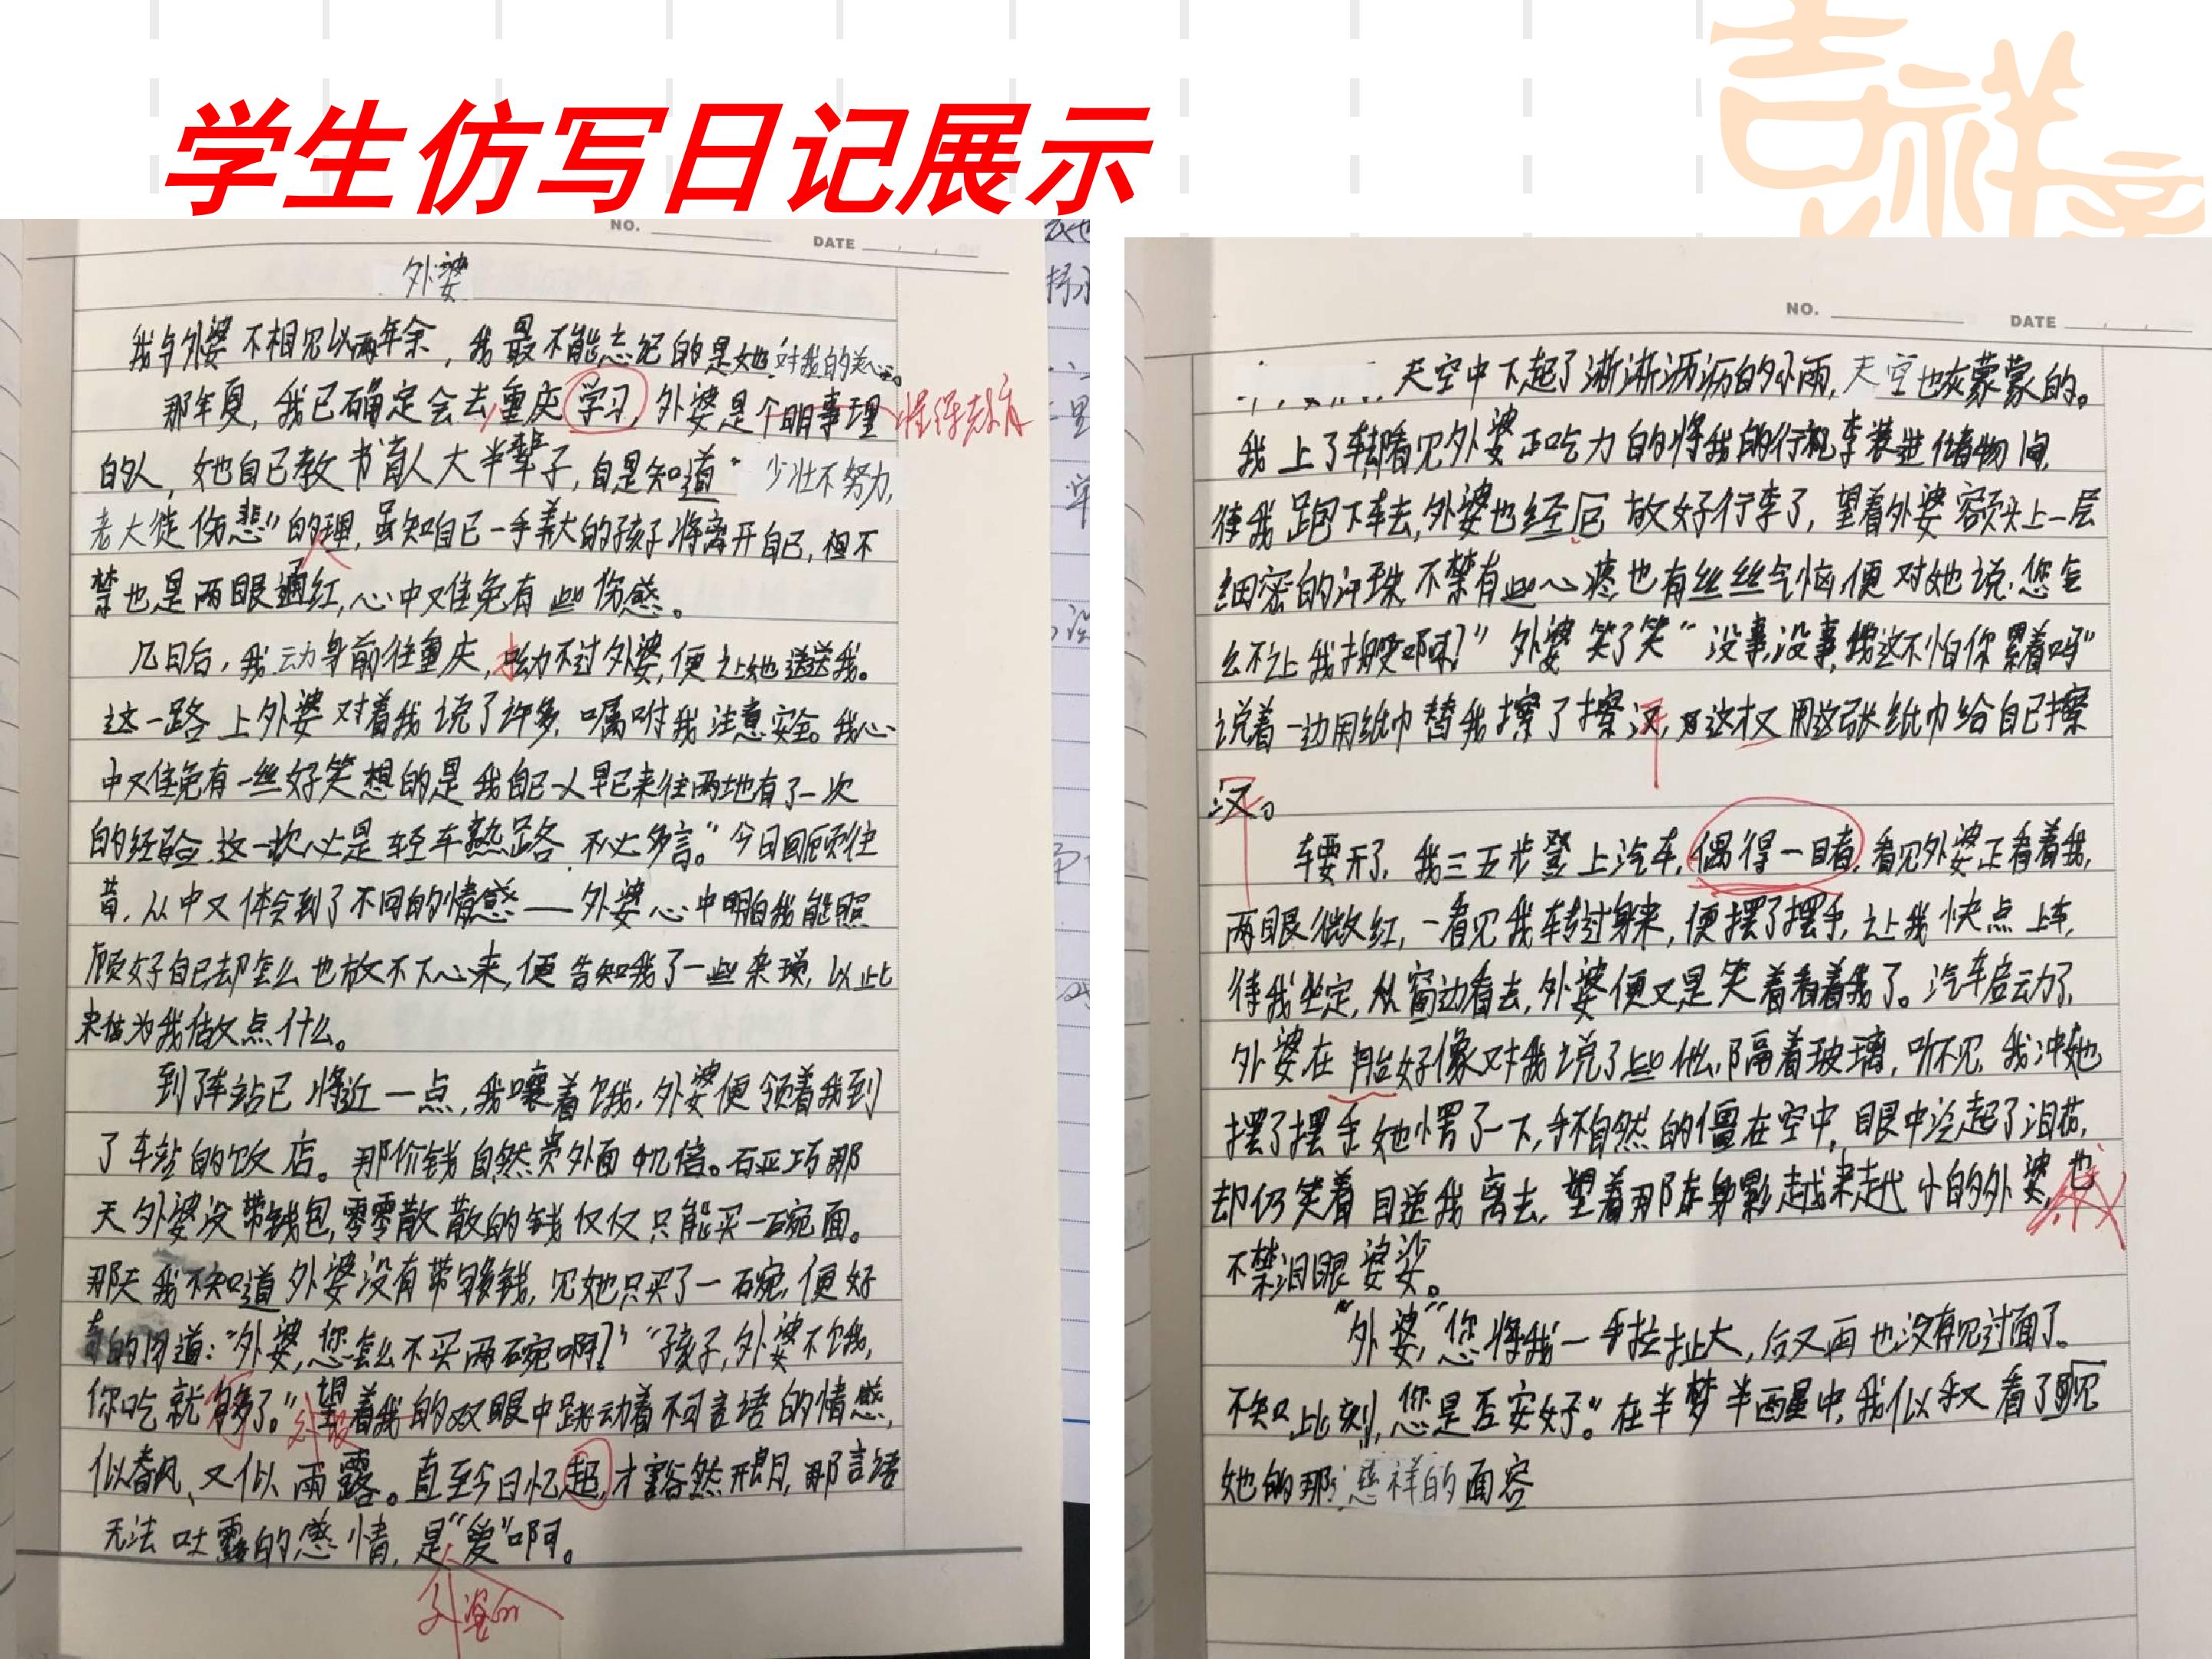 学生仿写日记展示
吉祥
NO.
DATE
外婆
我与外婆不相见以两年余，我最不能忘记的是她对我的关心。
那年夏，我已确定会去重庆学习，外婆是个明事理
的人，她自己教书育人大半辈子，自是知道“少壮不努力，
老大徒伤悲”的理，虽知自己一手养大的孩子将离开自己，但不
禁也是两眼通红，心中又难免有些伤感。
几日后，我动身前往重庆，拗不过外婆，便让她送我。
这一路上外婆对着我说了许多，嘱咐我注意安全。我心
中又难免有一丝好笑想的是我自己一人早已来往两地有了一次
的经验，这一次必是轻车熟路，不必多言。”今日回顾往
昔，从中又体会到了不同的情感——外婆心中明白我能照
顾好自己却怎么也放不下心来，便告知我了一些杂琐，以此
来估为我做点什么。
到了车站已将近一点，我嚷着饿，外婆便领着我到
了车站的饭店。那价钱自然贵外面几倍。石正巧那
天外婆没带钱包，零零散散的钱仅仅只能买一碗面。
那天我不知道外婆没有带够钱，见她只买了一碗，便好
奇的问道：“外婆，您怎么不买两碗啊？”“孩子，外婆不饿，
你吃就够了。”望着我的双眼中跳动着不可言语的情感，
外婆
似春风、又似雨露。直至今日忆起，才豁然开朗，那言语
无法吐露的感情，是“爱”啊。
外婆的
NO.
DATE
天空中下起了淅淅沥沥的小雨，天空也灰蒙蒙的。
我上了车却看见外婆正吃力的将我的行李装进储物间，
待我跑下车去，外婆也经后放好行李了，望着外婆额头上一层
细密的汗珠，不禁有些心疼，也有丝丝气恼，便对她说：您怎
么不让我搬啊？”外婆笑了笑“没事，没事，我这不怕你累着吗”
说着一边用纸巾替我擦了擦汗，这才又用这张纸巾给自己擦
汗。
车要开了，我三五步登上汽车，偶得一目看，看见外婆正看着我，
两眼微红，一看见我转过身来，便摆了摆手，让我快点上车，
待我坐定，从窗边看去，外婆便又是笑着看着我了。汽车启动了，
外婆在月台好像对我说了些什么，隔着玻璃，听不见，我冲她
摆了摆手她愣了一下，手不自然的僵在空中，眼中泛起了泪花，
却仍笑着目送我离去，望着那身影越来越小的外婆，也
我
不禁泪眼婆娑。
“外婆，”您将我一手拉扯大，后又再也没有见过面了。
不知此刻，您是否安好。”在半梦半醒中，我似乎又看见
她的那慈祥的面容